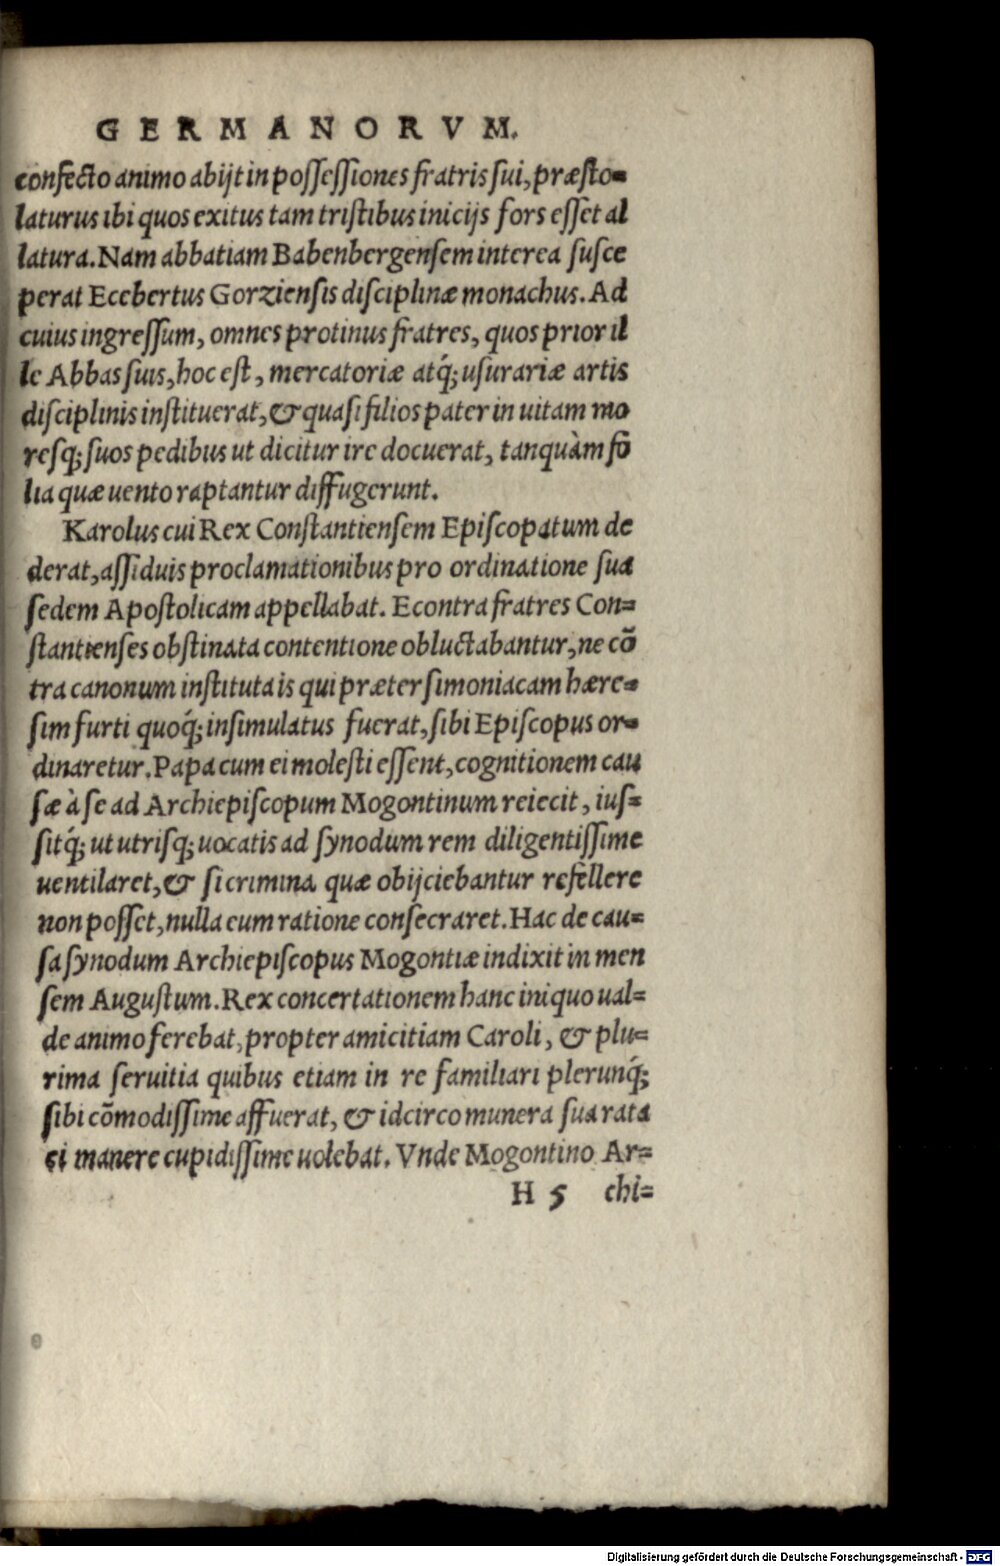 GERMANORVM.
confecto animo abijt in possessiones fratris sui, præsto-
laturus ibi quos exitus tam tristibus inicijs fors esset al
latura. Nam abbatiam Babenbergensem interea susce
perat Ecebertus Gorziensis disciplinæ monachus. Ad
cuius ingressum, omnes protinus fratres, quos prior il
le Abbas suis, hoc est, mercatoriæ atq́; usurariæ artis
disciplinis instituerat, & quasi filios pater in uitam mo
resq́; suos pedibus ut dicitur ire docuerat, tanquàm fo
lia quæ uento raptantur diffugerunt.
Karolus cui Rex Constantiensem Episcopatum de
derat, assiduis proclamationibus pro ordinatione sua
sedem Apostolicam appellabat. Econtra fratres Con=
stantienses obstinata contentione obluctabantur, ne cõ
tra canonum instituta is qui præter simoniacam hære=
sim furti quoq́; insimulatus fuerat, sibi Episcopus or=
dinaretur. Papa cum ei molesti essent, cognitionem cau
sæ à se ad Archiepiscopum Mogontinum reiecit, ius=
sitq́; ut utrisq; uocatis ad synodum rem diligentissime
uentilaret, & si crimina quæ obijciebantur refellere
non posset, nulla eum ratione consecraret. Hac de cau=
sa synodum Archiepiscopus Mogontiæ indixit in men
sem Augustum. Rex concertationem hanc iniquo ual=
de animo ferebat, propter amicitiam Caroli, & plu=
rima seruitia quibus etiam in re familiari plerunq́;
sibi cõmodissime affuerat, & idcirco munera sua rata
ei manere cupidissime uolebat. Vnde Mogontino Ar=
H 5 chi=
Digitalisierung gefördert durch die Deutsche Forschungsgemeinschaft - DFG